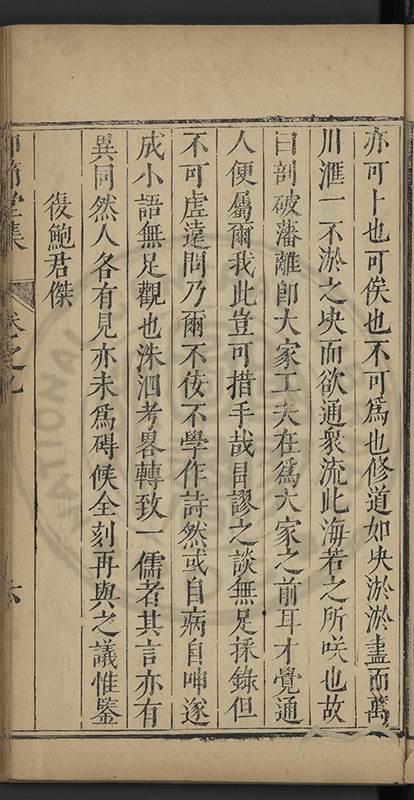 亦可卜也可俟也不可為也修道如决淤淤盡而萬
川滙一不淤之决而欲通衆流此海若之所咲也故
曰剖破藩離卽大家工夫在爲大家之前耳才覺通
人便屬爾我此豈可措手哉𠕋謬之談無足採錄但
不可虛遠問乃爾不佞不學作詩然或自病自呻遂
成小語無足觀也洙泗考畧轉致一儒者其言亦有
異同然人各有見亦未爲碍候全刻再與之議惟鑒
復鮑君傑
堂集
卷之九
六